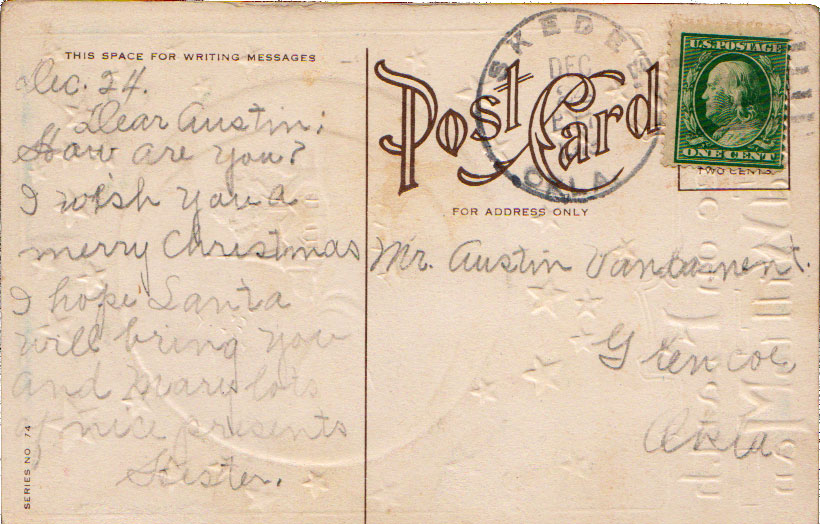 THIS SPACE FOR WRITING MESSAGES
Dec. 24.
Dear Austin:
How are you?
I wish you a
merry Christmas
I hope Santa
will bring you
and Mary lots
nice presents
Hester.
SERIES NO. 74
Post Card
FOR ADDRESS ONLY
SKEDEE
DEC
OKLA
U.S. POSTAGE
ONE CENT
TWO CENTS
Mr. Austin
Glencoe,
Okla